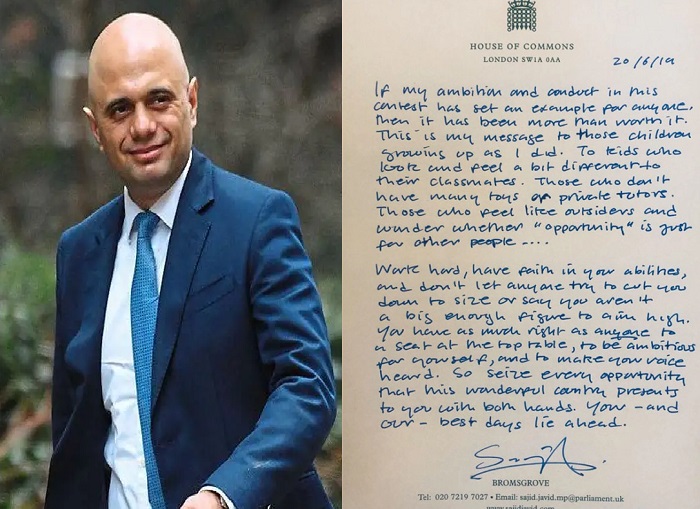 HOUSE OF COMMONS
LONDON SW1A 0AA
20/6/19
If my ambition and conduct in this
contest has set an example for anyone,
then it has been more than worth it.
This is my message to those children
growing up as I did. To kids who
look and feel a bit different to
their classmates. Those who don't
have many toys or private tutors.
Those who feel like outsiders and
wonder whether "opportunity" is just
for other people ....
Work hard, have faith in your abilities,
and don't let anyone try to cut you
down to size or say you aren't
a big enough figure to aim high.
You have as much right as anyone to
a seat at the top table, to be ambitious
for yourself, and to make your voice
heard. So seize every opportunity
that this wonderful country presents
to you with both hands. Your - and
our - best days lie ahead.
BROMSGROVE
Tel: 020 7219 7027 • Email: sajid.javid.mp@parliament.uk
www.sajidjavid.com